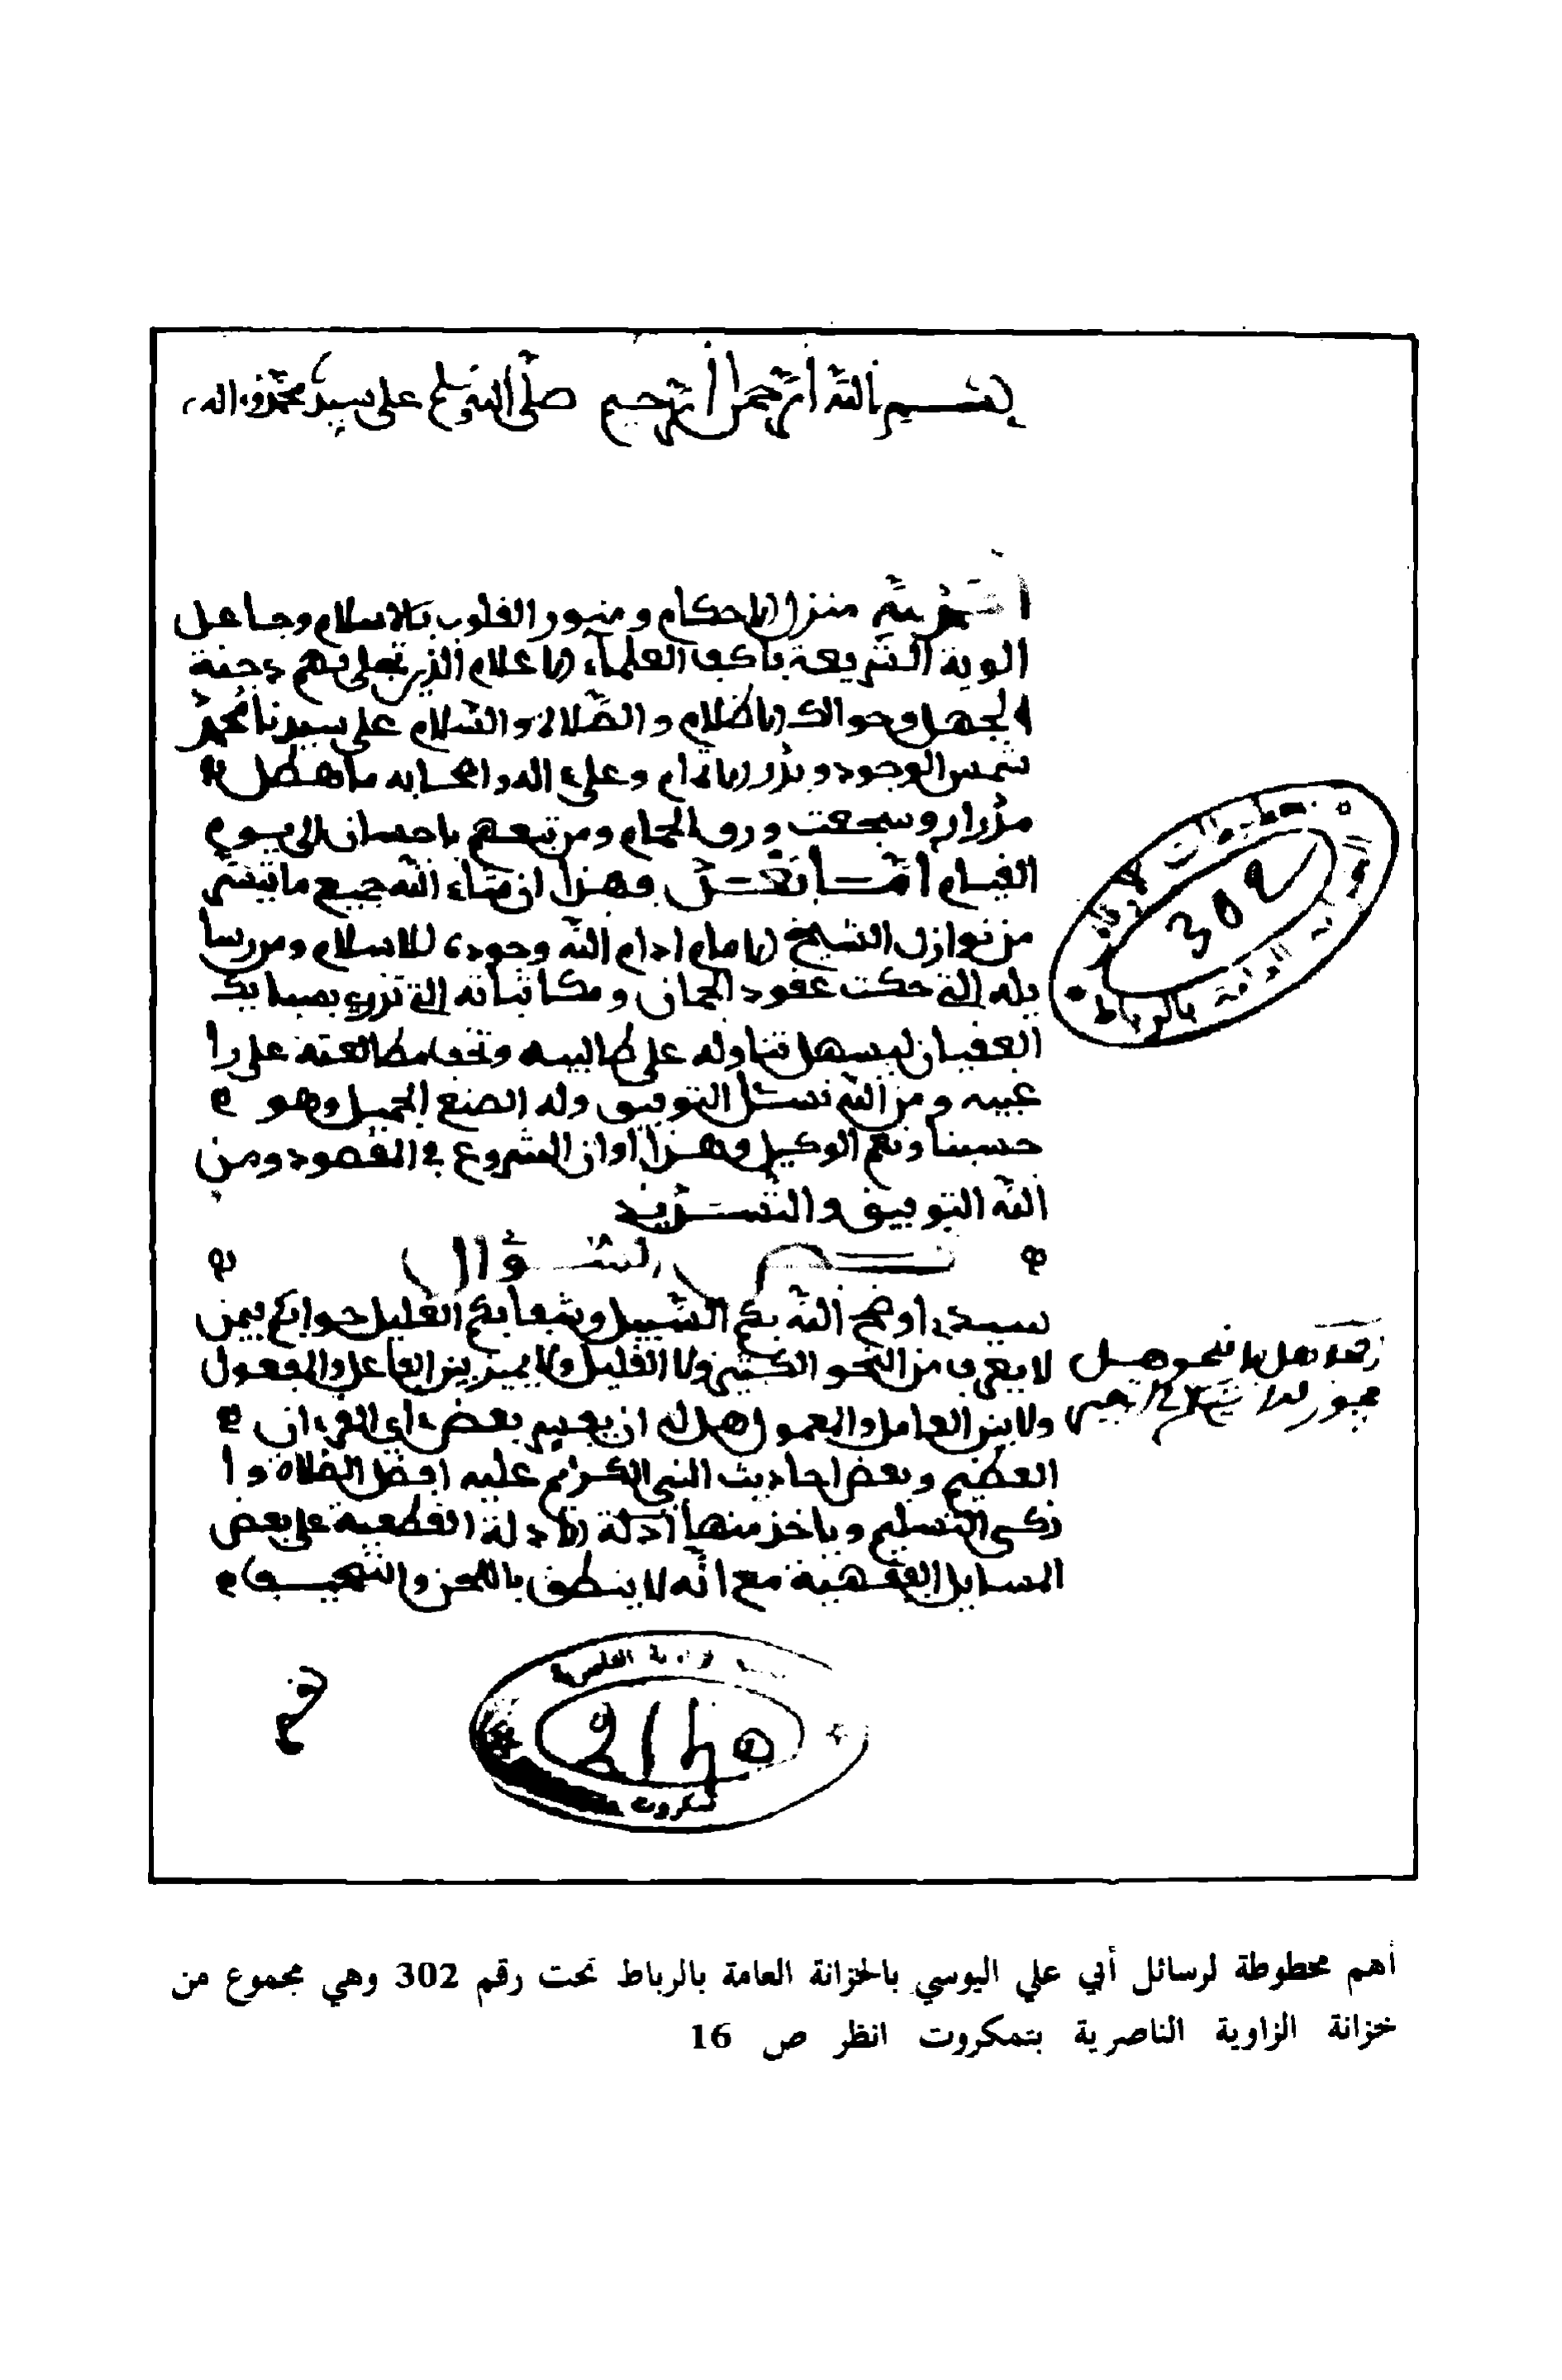 بسم الله الرحمن الرحيم صلى الله وسلم على سيدنا محمد وءاله
الحمد لله منزل الاحكام ومنور القلوب بالاسلام وجاعل
الوية الشريعة باكف العلماء الاعلام الذين تجلى بهم دجنة
الجهل وحوالك الاظلام والصلاة والسلام على سيدنا محمد
شمس الوجود وبدر التمام وعلى ءاله واصحابه ما هطل
مدرار وسجعت ورق الحمام ومن تبعهم باحسان الى يوم
القيام اما بعد فهذا ان شاء الله جميع ما تيسر
من نوازل الشيخ الامام ادام الله وجوده للاسلام ومن رسا
يله التي حكت عقود الجمان ومكاتباته التي تزري بصبايك
العقيان ليسهل تناوله على طالبيه وتخف مطالعته على را
غبيه ومن الله نسئل التوفيق وله الصنع الجميل وهو
حسبنا ونعم الوكيل وهذا اوان الشروع في المقصود ومن
الله التوفيق والتسديد
نص السؤال
سيدي اوضح الله بكم السبيل وشفا بكم الغليل جوابكم فيمن
لا يعرف من النحو الكثير ولا القليل ولا يميز بين الفاعل والمفعول
ولا بين العامل والمعمول هل له ان يفسر بعض ءاي القرءان
العظيم وبعض احاديث النبي الكريم عليه افضل الصلاة وا
زكى التسليم وياخذ منها ادلة الادلة القطعية على بعض
المسايل الفقهية مع انه لا ينطق باللحن والتصحيف
هل
يجوز له
302
بالرباط
الناصرية
تمكروت
أهم مخطوطة لرسائل أبي علي اليوسي بالخزانة العامة بالرباط تحت رقم 302 وهي مجموع من
خزانة الزاوية الناصرية بتمكروت انظر ص 16